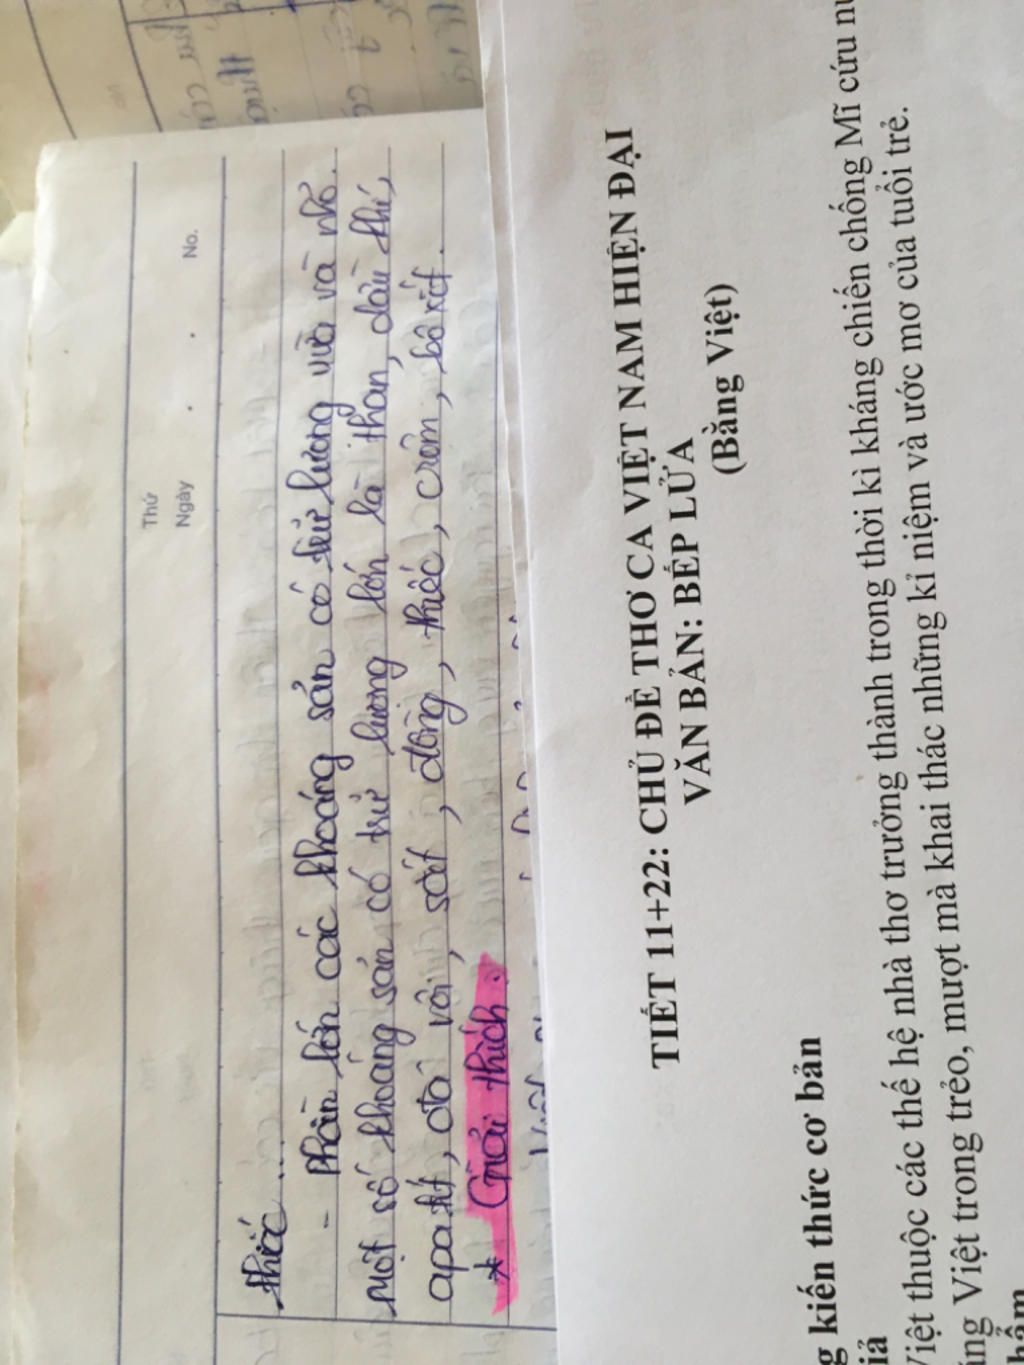 Thứ
Ngày
No.
thiếc...
- Phần lớn các khoáng sản có trữ lượng vừa và nhỏ.
Một số khoáng sản có trữ lượng lớn là than, dầu khí,
apatit, đá vôi, sắt, đồng, thiếc, crôm, bôxit.
* Giải thích.
TIẾT 11+22: CHỦ ĐỀ THƠ CA VIỆT NAM HIỆN ĐẠI
VĂN BẢN: BẾP LỬA
(Bằng Việt)
kiến thức cơ bản
Việt thuộc các thế hệ nhà thơ trưởng thành trong thời kì kháng chiến chống Mĩ cứu
Việt trong trẻo, mượt mà khai thác những kỉ niệm và ước mơ của tuổi trẻ.